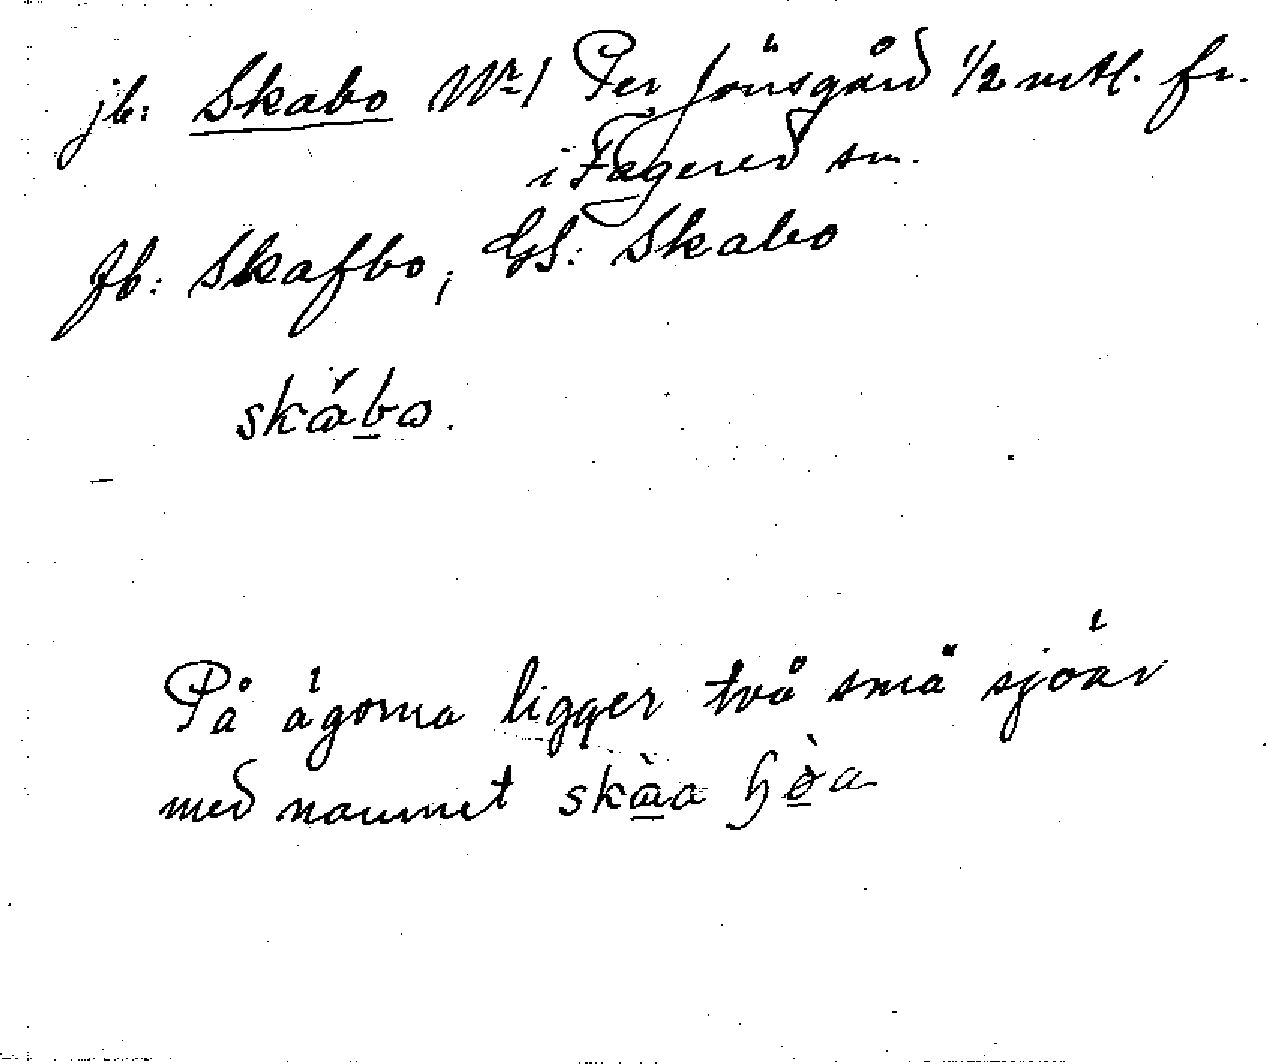 jb: Skabo Nr 1 Per Jönsgård 1/2 mtl. fr.
i Fagered sn.
Jb: Skafbo, GS: Skabo
skábo.
På ägorna ligger två små sjöar
med namnet skàa